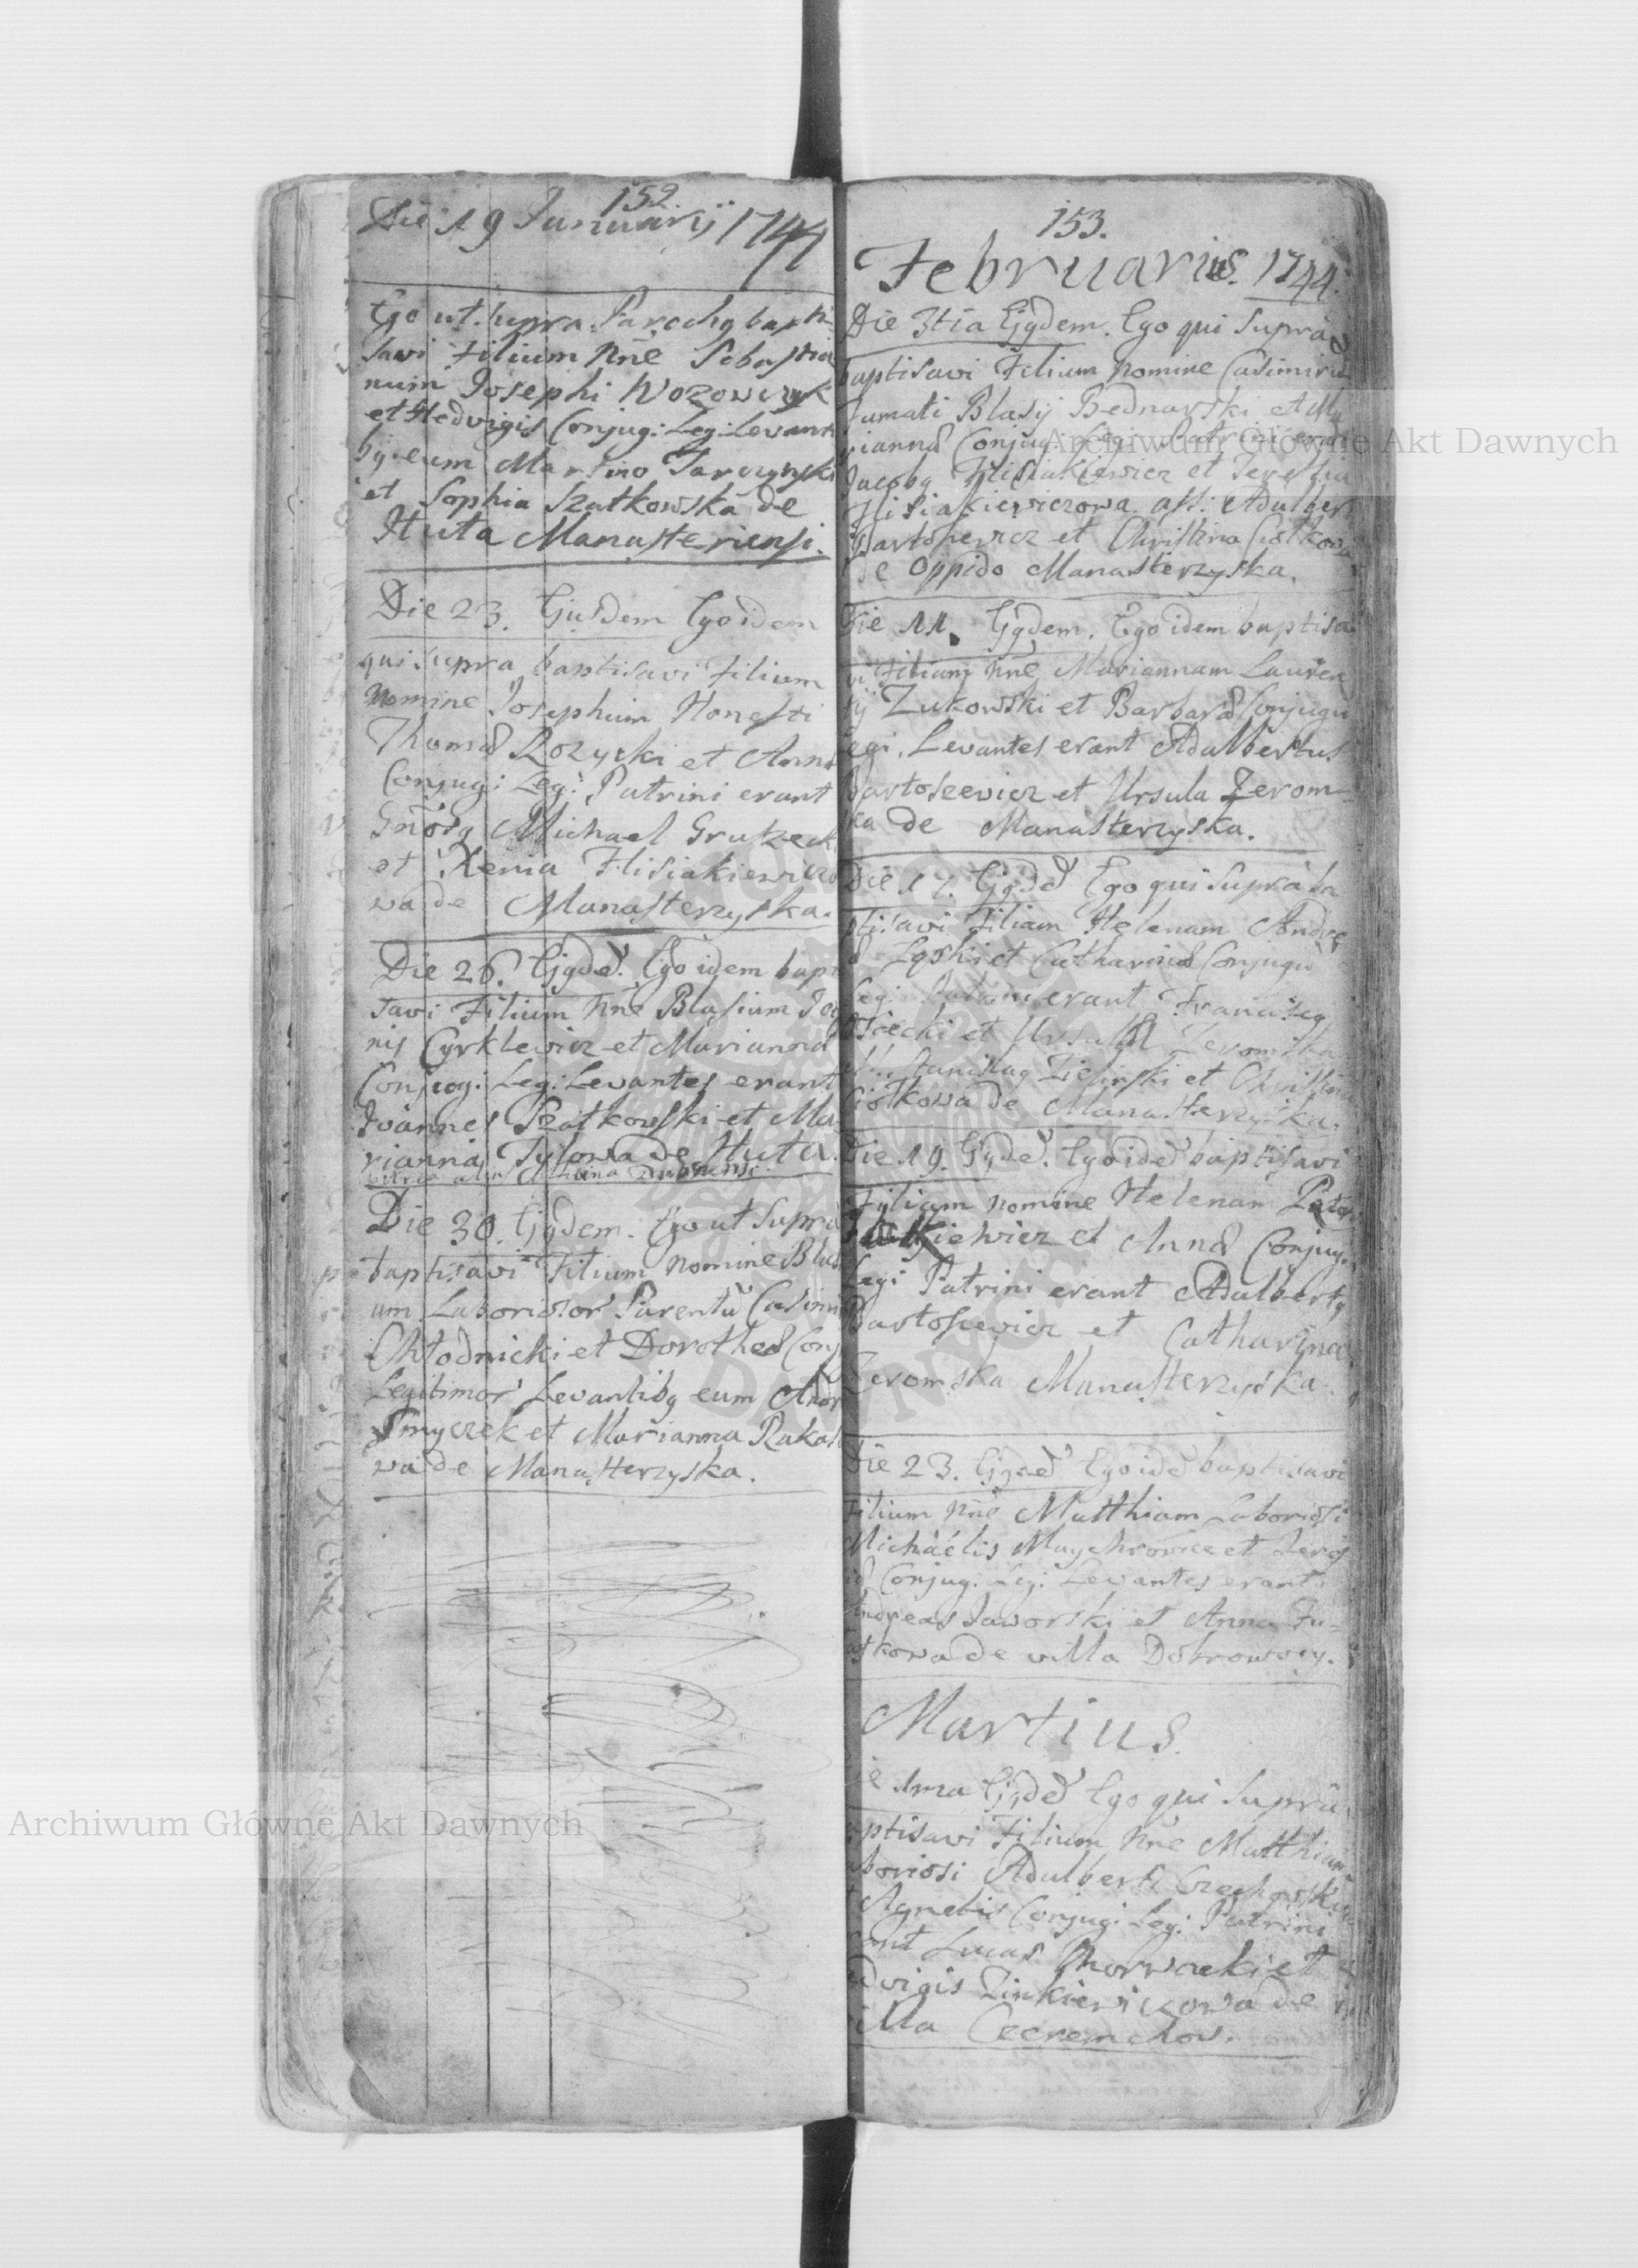 152.
Die 19 Januarij 1744
Ego ut supra Parochg bapti-
savi Filium Nne Sebastia
num Josephi Wozowczyk
et Hedvigis Conjug: Leg: Levanti
bg eum Martino Jarczynski
et Sophia Szatkowska de
Huta Manasteriensi.
Die 23. Ejusdem Ego idem
qui supra baptisavi Filium
Nomine Josephum Honesti
Thomæ Rozycki et Annæ
Conjug: Leg: Patrini erant
Michael
et Xenia Flisiakiewiczo
wa de Manasterzyska.
Die 26. Ejgdē. Ego idem bapt
savi Filium Nne Blasium Joā
nis Cyrklewicz et Mariannæ
Conjug: Leg: Levantes erant
Joannes Szatkowski et Ma
rianna Tylowa de Huta.
Die 30. Ejgdem. Ego ut supra
baptisavi Filium Nomine Blasi
um Laboriosor Parentū Casimi
Chłodnicki et Dorotheæ Conj
Legitimor Levantibg eum Andr
Smyczek et Marianna Rako
wa de Manasterzyska.
153.
Februarius. 1744.
Die 3tia Ejgdem. Ego qui supra
baptisavi Filium Nomine Casimirū
Famati Blasij Bednarski et Ma
riannæ Conjug: Legi: Patrini erant
Jacobg Flisiakiewicz et Teressia
Flisiakiewiczowa. ass: Adalbert
Bartosiewicz et Christina Ciołkowa
de Oppido Manasterzyska.
Die 11. Ejgdem. Ego idem baptisa
vi Filiam Nne Mariannam Lauren
tij Zukowski et Barbaræ Conjugū
Legi. Levantes erant Adalbertus
Bartosiewicz et Ursula Zerom-
ska de Manasterzyska.
Die 17. Ejgdē Ego qui supra ba
ptisavi Filiam Helenam Andre
æ Lyski et Catharinæ Conjugū
Legi. Patrini erant Franciscg
et Ursula Zeromska
ass: Stanislag Zielinski et Christina
Ciołkowa de Manasterzyska.
Die 19. Ejgdē. Ego idē baptisavi
Filiam Nomine Helenam
et Annæ Conjug.
Legi Patrini erant Adalbertg
Bartosiewicz et Catharina
Zeromska Manasterzyska.
Die 23. Ejgdē Ego idē baptisavi
Filium Nne Matthiam Laboriosi
Michaelis et
Conjug: Legi. Levantes erant
Andreas Jaworski et Anna
de villa Dobrowody.
Martius
Die 1ma Ejgdē Ego qui supra
baptisavi Filium Nne Matthiam
Laboriosi Adalberti Czechowski
et Agnetis Conjug: Leg: Patrini
erant Lucas et
Hedvigis Zinkiewiczowa de
villa Czeremchow.
Archiwum Główne Akt Dawnych
Archiwum Główne Akt Dawnych